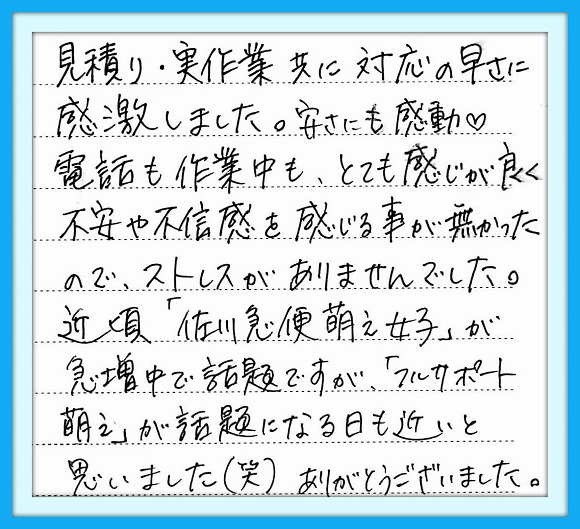 見積り・実作業 共に 対応の早さに
感激しました。安さにも感動♡
電話も作業中も、とても感じが良く
不安や不信感を感じる事が無かった
ので、ストレスがありませんでした。
近頃「佐川急便萌え女子」が
急増中で話題ですが、「フルサポート
萌え」が話題になる日も近いと
思いました(笑) ありがとうございました。